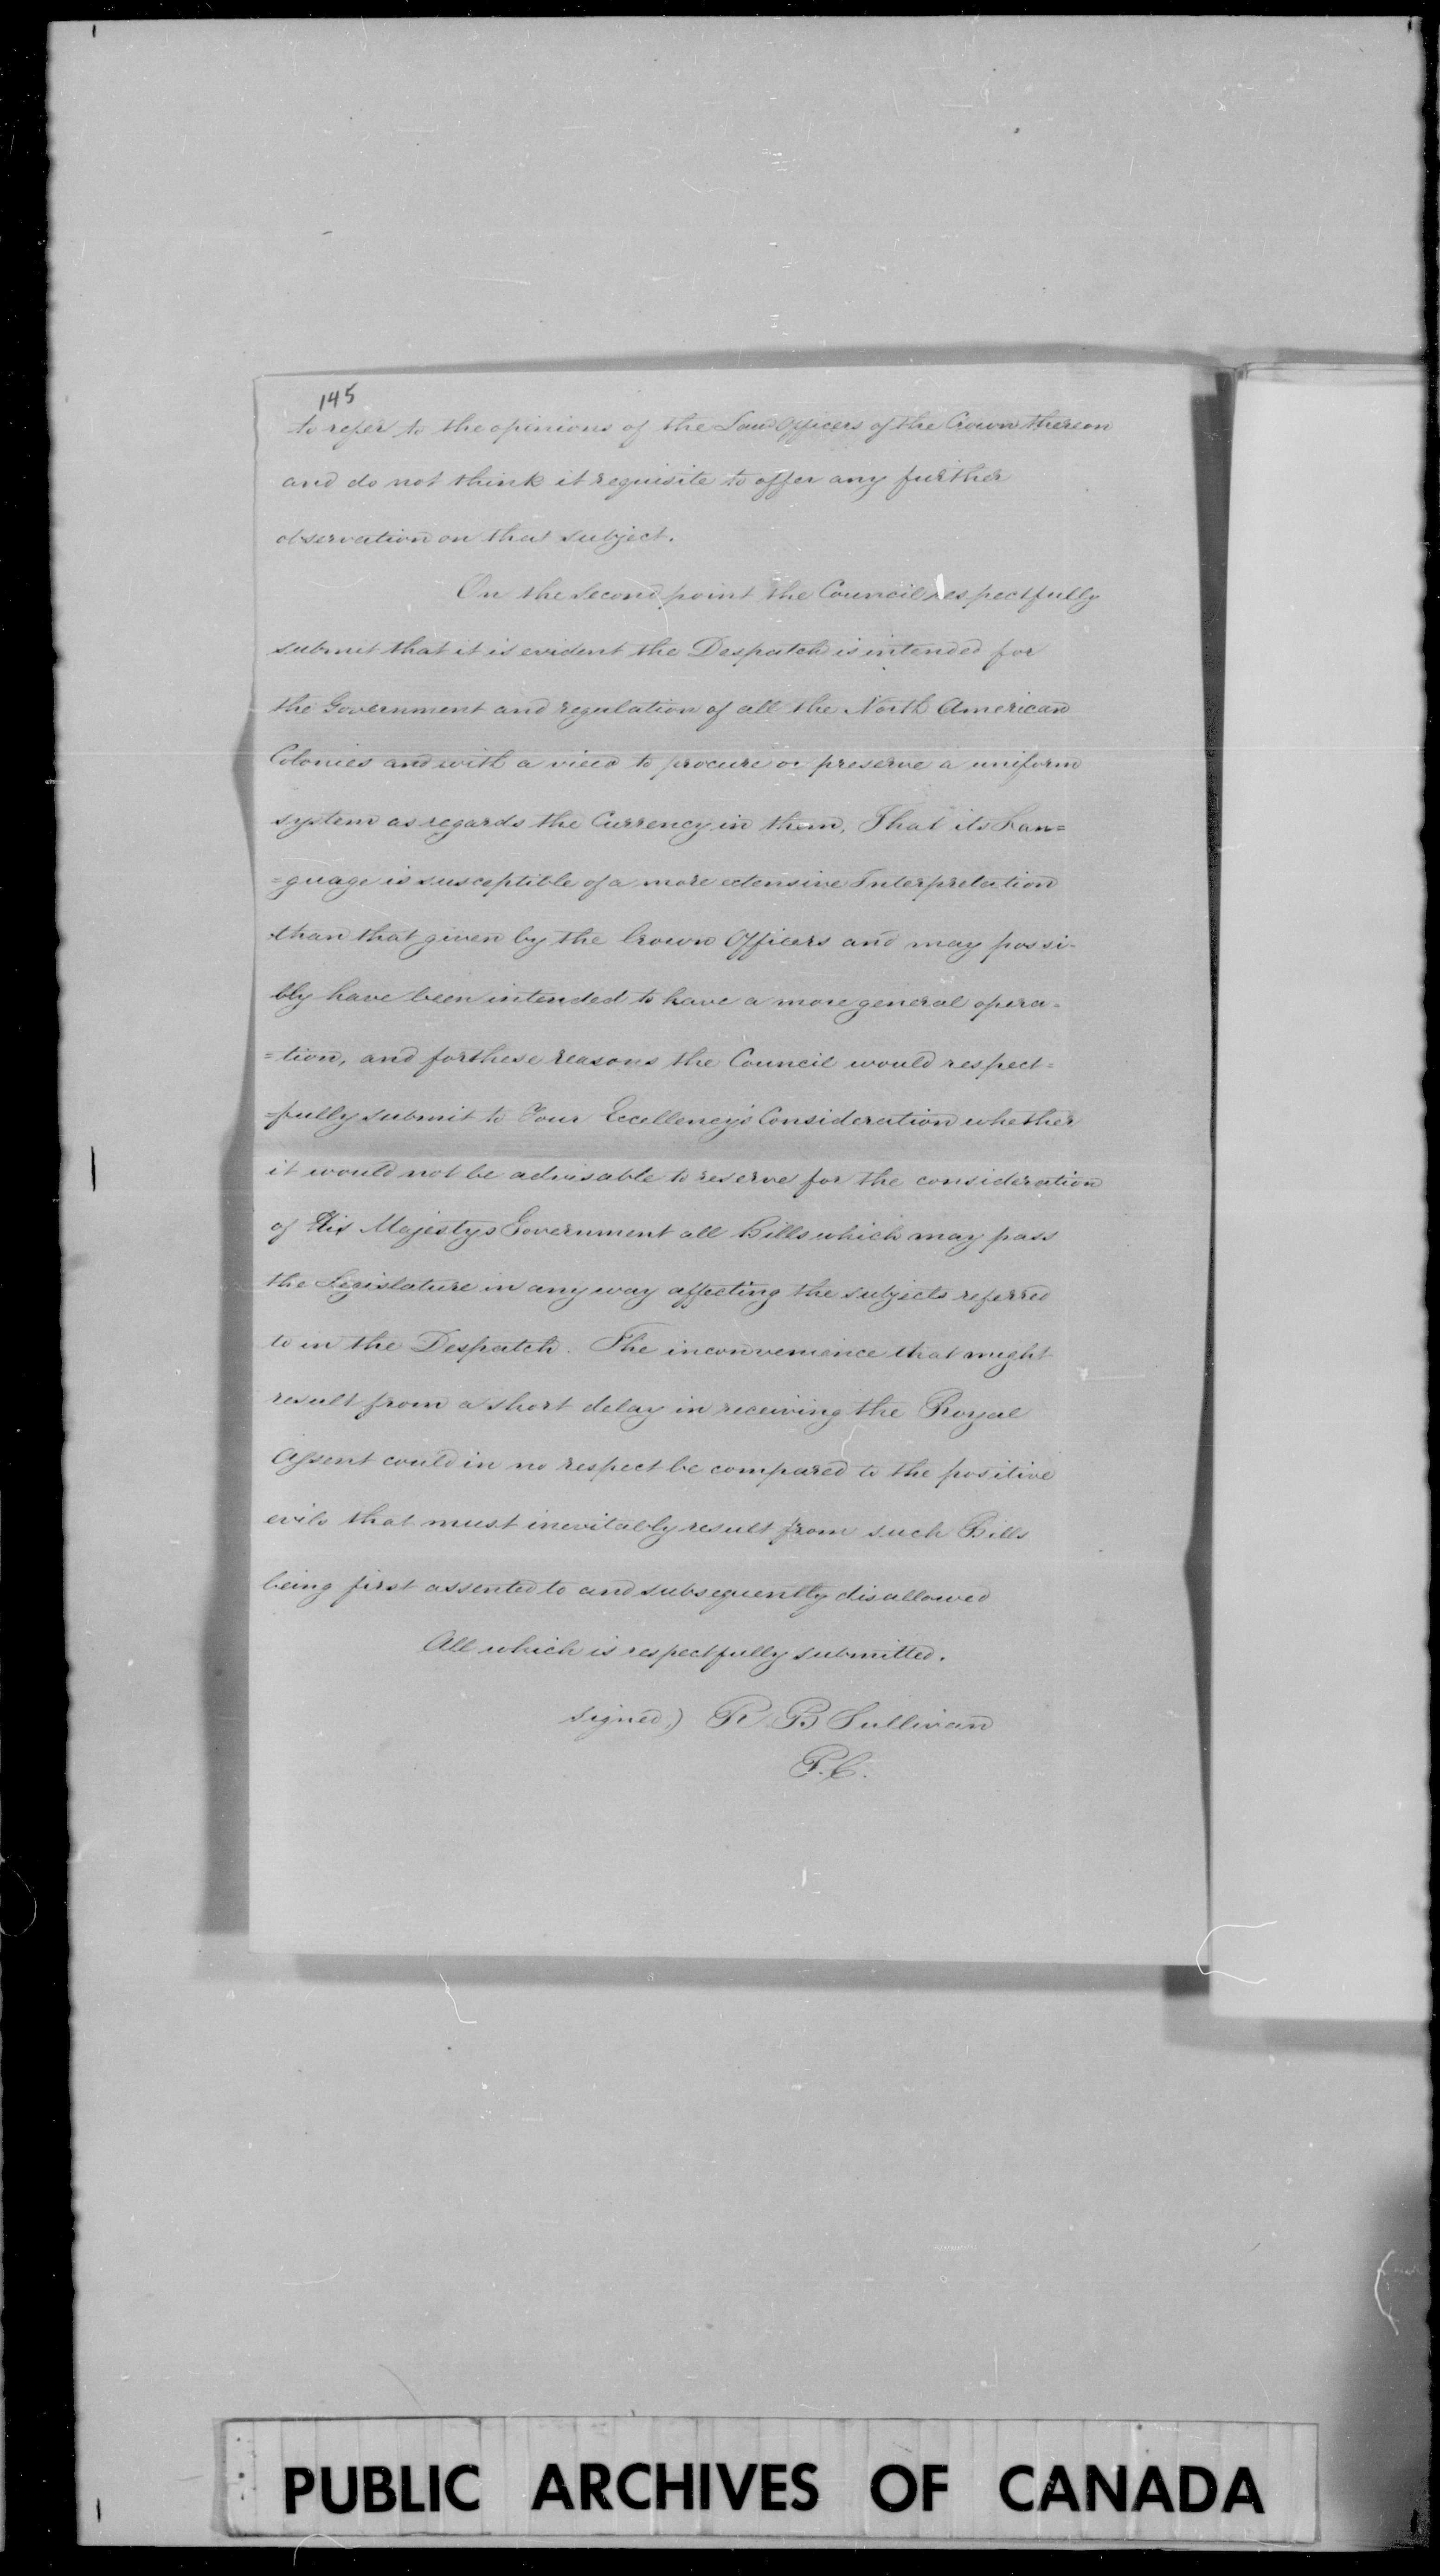 145
to refer to the opinions of the Law Officers of the Crown thereon
and do not think it requisite to offer any further
observation on that subject.
On the second point the Council respectfully
submit that it is evident the Despatch is intended for
the Government and regulation of all the North American
Colonies and with a view to procure or preserve a uniform
system as regards the Currency in them, That its Lan=
=guage is susceptible of a more extensive Interpretation
than that given by the Crown Officers and may possi-
bly have been intended to have a more general opera-
=tion, and for these reasons the Council would respect=
=fully submit to Your Excellency's Consideration whether
it would not be advisable to reserve for the consideration
of His Majestys Government all Bills which may pass
the Legislature in any way affecting the subjects referred
to in the Despatch. The inconvenience that might
result from a short delay in receiving the Royal
Assent could in no respect be compared to the positive
evils that must inevitably result from such Bills
being first assented to and subsequently disallowed
All which is respectfully submitted.
signed) R B Sullivan
P.C.
PUBLIC ARCHIVES OF CANADA